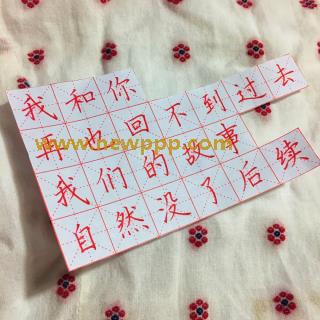 我和你
再也回不到过去
www.newppp.com
我们的故事
自然没了后续